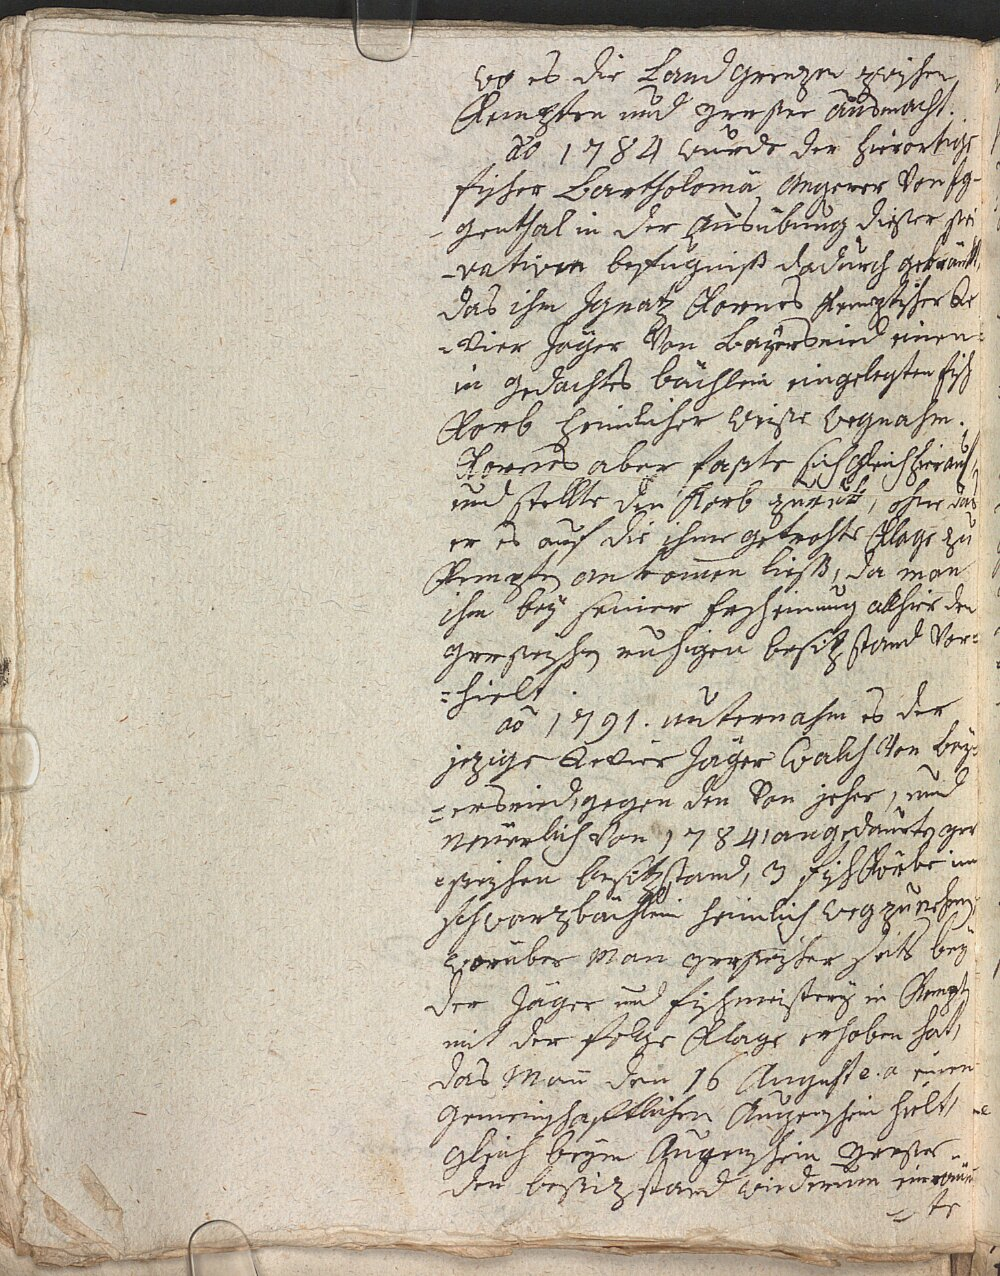 wo es die Landgrenzen zwischen
Kempten und grosser ausmacht.
ao 1784 wurde der hierortige
fischer Bartholomä Angerer von Eg-
-genthal in der Ausübung dieser pri
-vativen befugniß dadurch gekränkt,
das ihm Ignatz Kornes Kemptischer Re
-vier Jäger von Bayersried einen
in gedachtes bächlein eingelegten fisch
Korb heimlicher weise wegnahm.
Kornes aber faste sich gleich hierauf,
und stellte den Korb zurük, ohne das
er es auf die ihme getrohte Klage zu
Kempten ankommen ließ, da man
ihm bey seiner Erscheinung allhier den
ruhigen besitzstand vor-
=hielt.
ao 1791. unternahm es der
jezige Revier Jäger Walch von Bey-
=ersried, gegen den von jeher, und
neuerlich von 1784 angedaurten
besitzstand, 3 fischKörbe im
schwarzbächlein heimlich wegzunehmen,
worüber man seits bey
der Jäger und fischmeisterey in Kempten
mit der folge Klage erhoben hat,
das Man den 16 August e. a einen
gemeinschaftlichen Augenschein hielt,
gleich beym Augenschein
den besitzstand wiederum einraum
=te